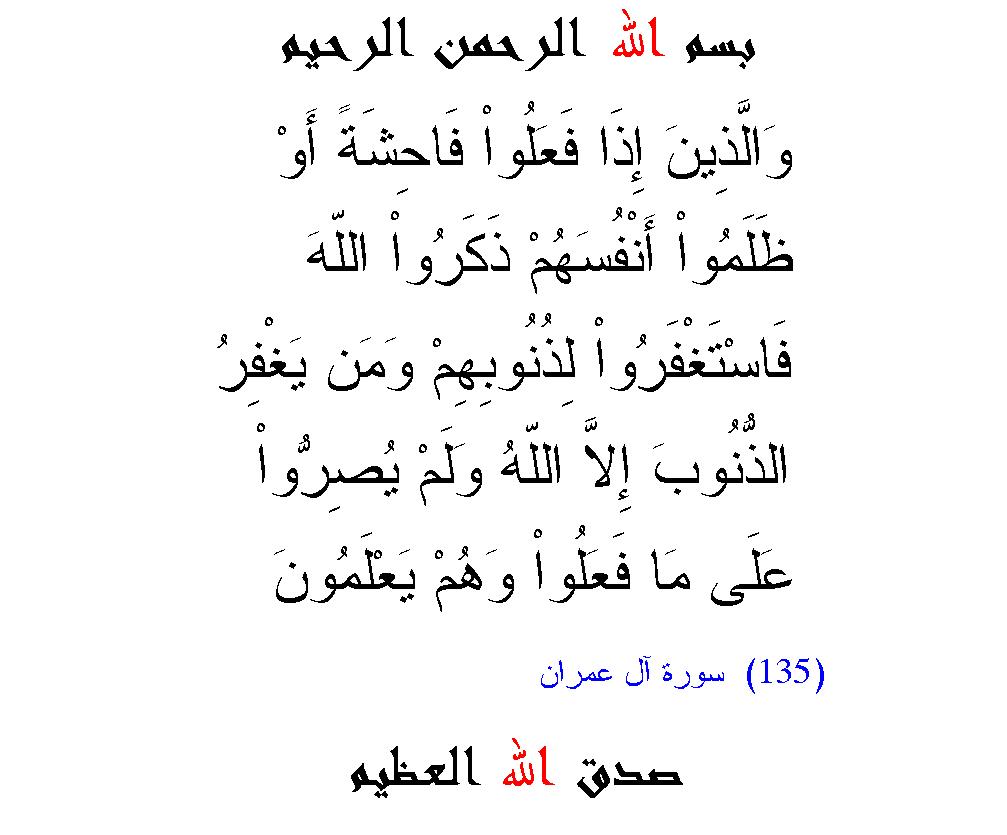 بسم الله الرحمن الرحيم
وَالَّذِينَ إِذَا فَعَلُواْ فَاحِشَةً أَوْ
ظَلَمُواْ أَنْفُسَهُمْ ذَكَرُواْ اللّهَ
فَاسْتَغْفَرُواْ لِذُنُوبِهِمْ وَمَن يَغْفِرُ
الذُّنُوبَ إِلاَّ اللّهُ وَلَمْ يُصِرُّواْ
عَلَى مَا فَعَلُواْ وَهُمْ يَعْلَمُونَ
(135) سورة آل عمران
صدق الله العظيم